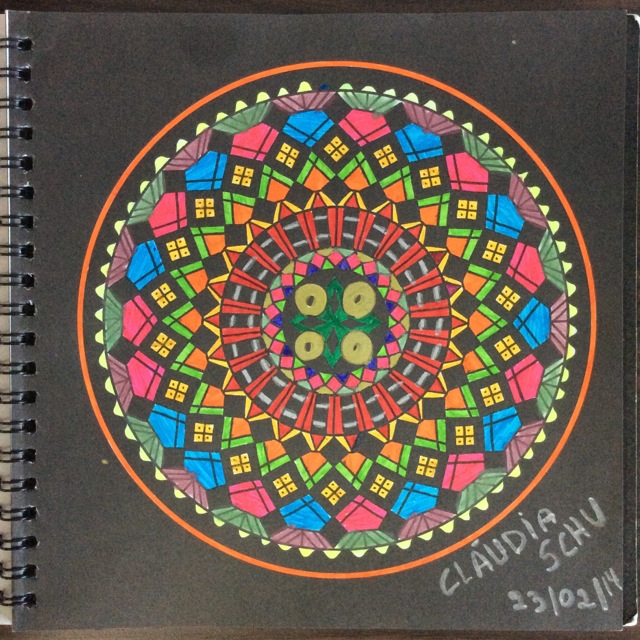 CLÁUDIA
SCHU
23/02/14